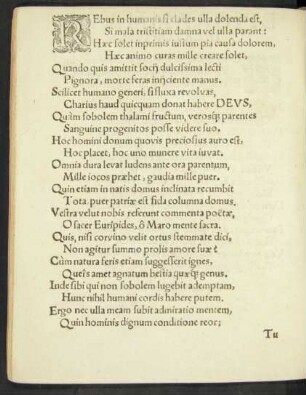 REbus in humanis si clades ulla dolenda est,
Si mala tristitiam damna vel ulla parant:
Hæc solet inprimis iustum pia causa dolorem,
Hæc animo curas mille creare solet,
Quando quis amittit socij dulcissima lecti
Pignora, morte feras inijciente manus.
Scilicet humano generi, si fluxa revolvas,
Charius haud quicquam donat habere DEVS,
Quàm sobolem thalami fructum, verosq́; parentes
Sanguine progenitos posse videre suo.
Hoc homini donum quovis preciosius auro est,
Hoc placet, hoc uno munere vita iuvat.
Omnia dura levat ludens ante ora parentum,
Mille iocos præbet, gaudia mille puer.
Quin etiam in natis domus inclinata recumbit
Tota. puer patriæ est fida columna domus.
Vestra velut nobis referunt commenta poëtæ,
O sacer Eurípides, ô Maro mente sacra.
Quis, nisi corvino velit ortus stemmate dici,
Non agitur summo prolis amore suæ?
Cùm natura feris etiam suggesserit ignes,
Queîs amet agnatum bestia quæq́; genus.
Inde sibi qui non sobolem lugebit ademptam,
Hunc nihil humani cordis habere putem.
Ergo nec ulla meam subit admiratio mentem,
Quin hominis dignum conditione reor;
Tu